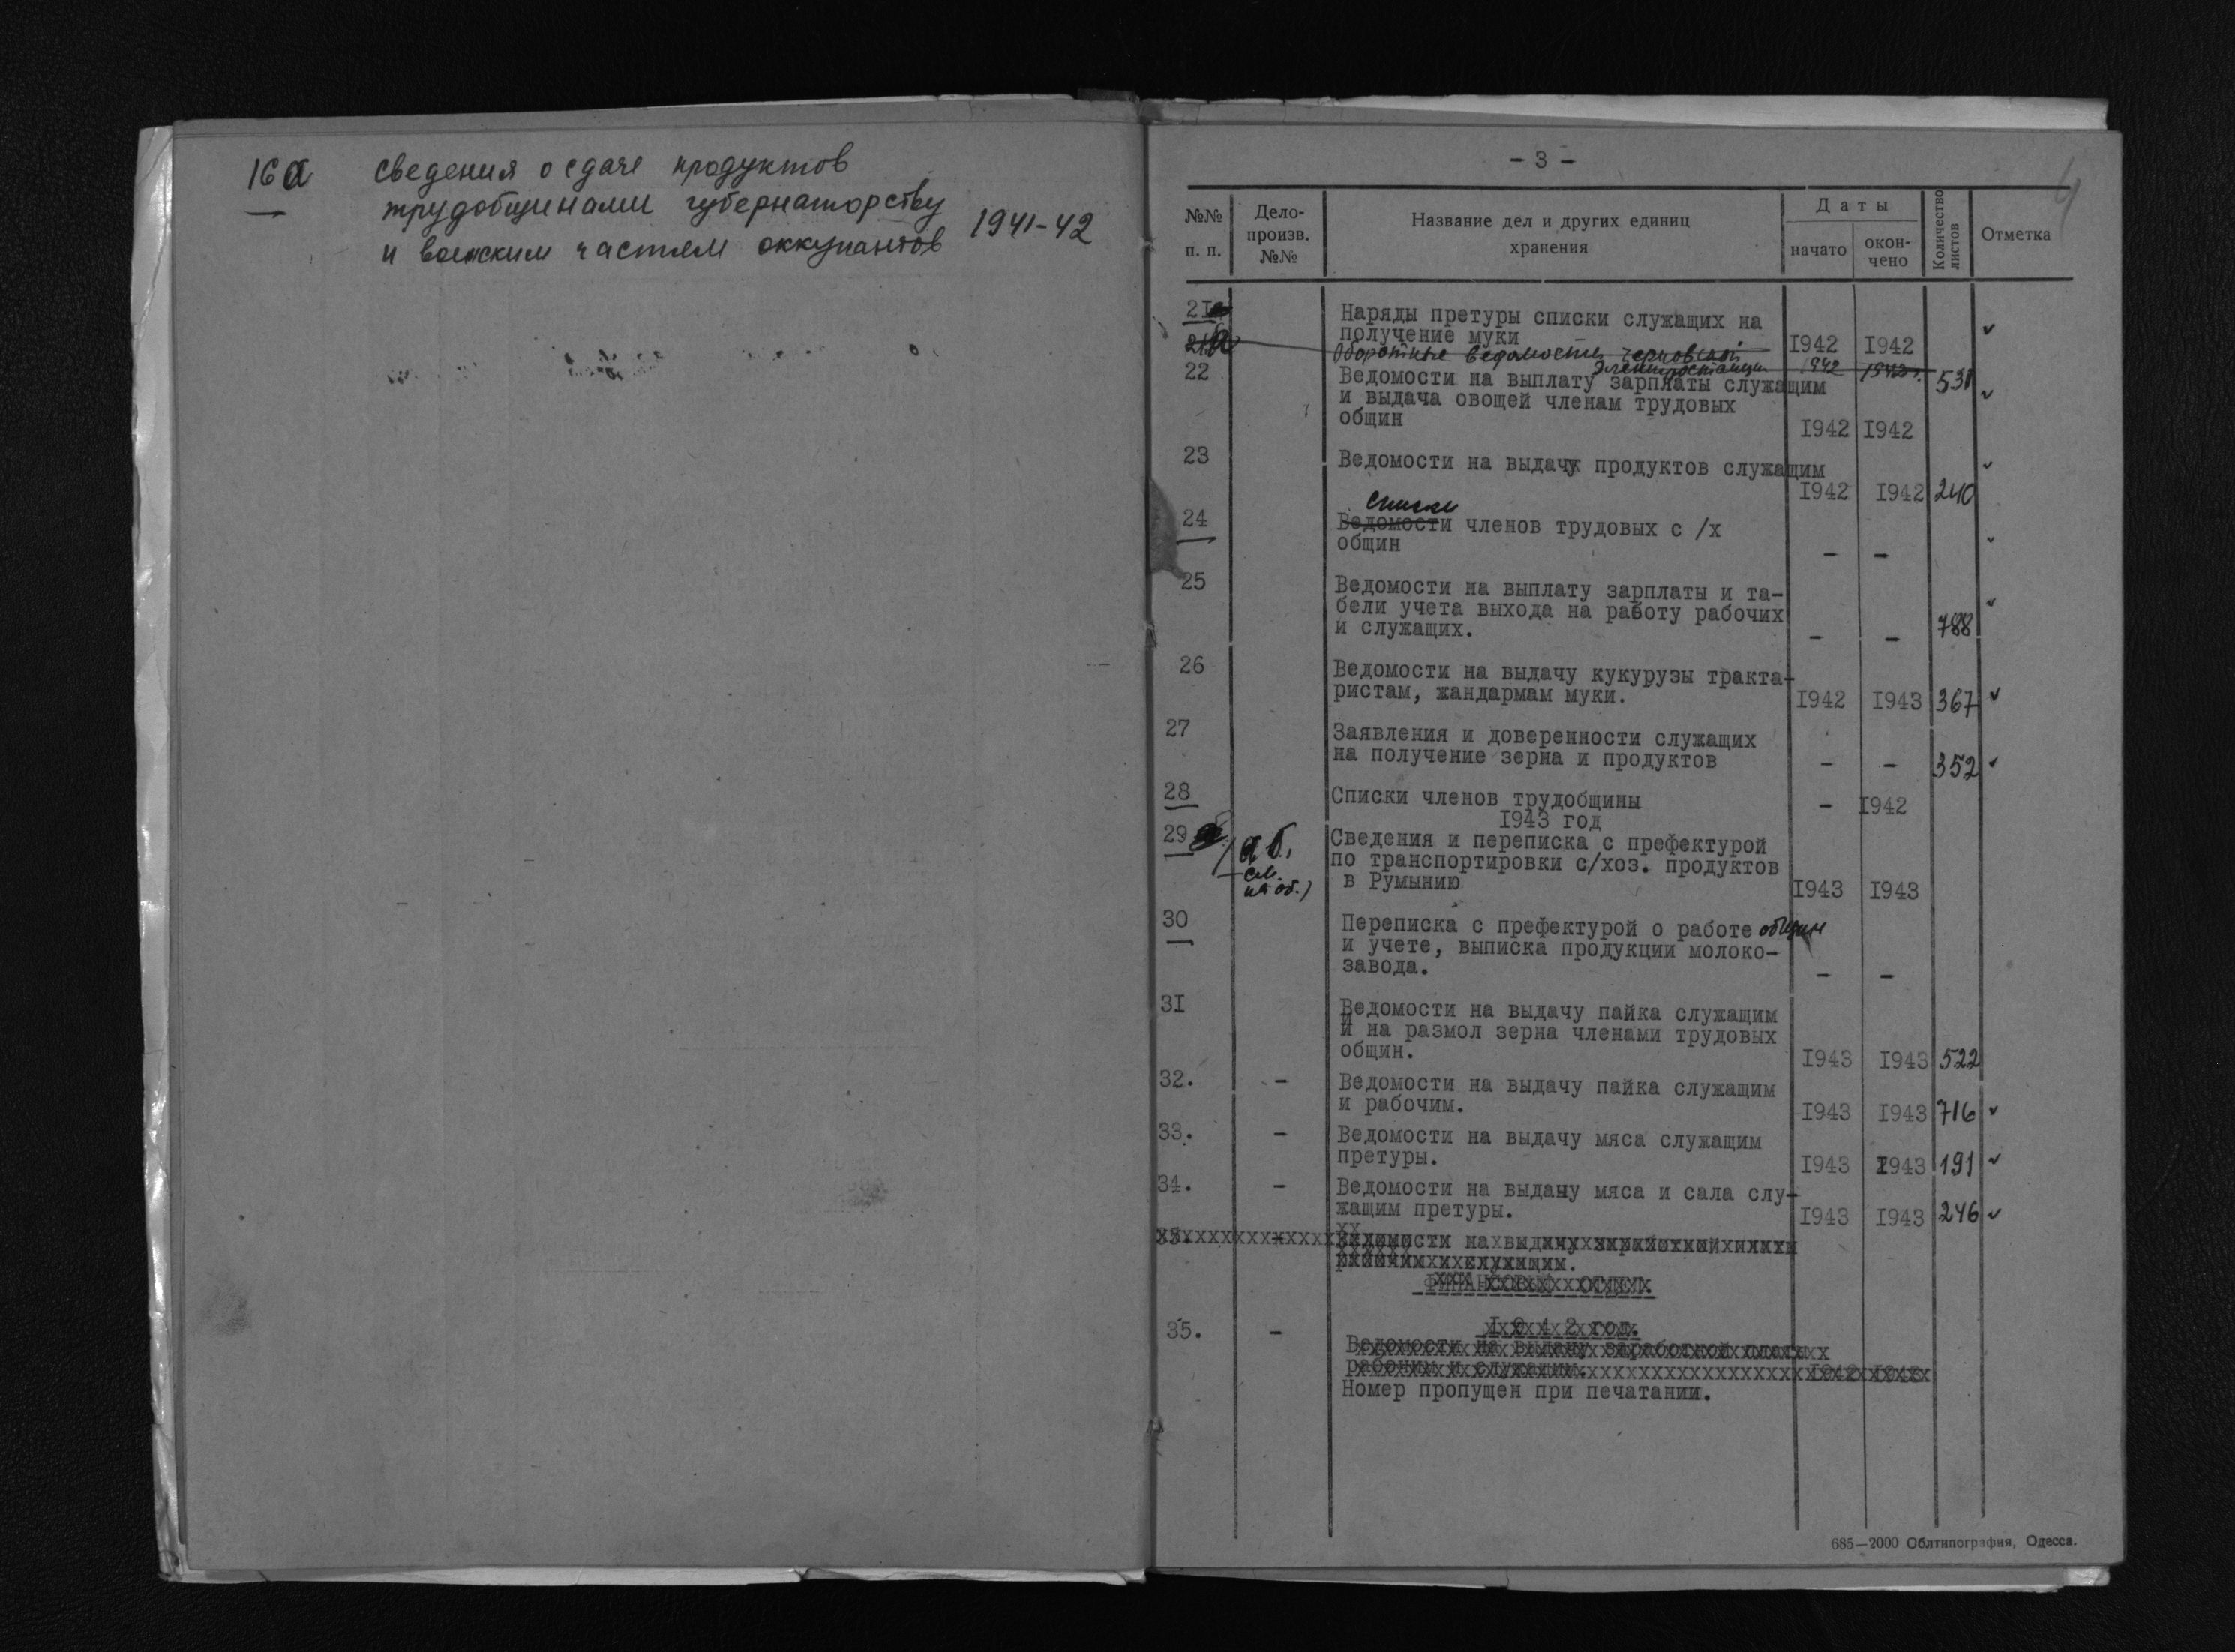 16а сведения о сдаче продуктов
трудобщинами губернаторству
и воинским частям оккупантов 1941-42
- 3 -
4
№№ п. п. Дело- произв. №№ Название дел и других единиц хранения Даты начато окон- чено Количество листов Отметка
21а Наряды претуры списки служащих на
получение муки 1942 1942 ✓
Оборотные ведомости
электростанции 1942
22 Ведомости на выплату зарплаты служащим 531
и выдача овощей членам трудовых ✓
общин 1942 1942
23 Ведомости на выдачу продуктов служащим ✓
1942 1942 240
списки
24 Ведомости членов трудовых с /х
общин - - ✓
25 Ведомости на выплату зарплаты и та-
бели учета выхода на работу рабочих ✓
и служащих. - - 788
26 Ведомости на выдачу кукурузы тракта-
ристам, жандармам муки. 1942 1943 367 ✓
27 Заявления и доверенности служащих
на получение зерна и продуктов - - 352 ✓
28 Списки членов трудобщины - 1942
1943 год
29 а б, Сведения и переписка с префектурой
по транспортировки с/хоз. продуктов
см. на об.) в Румынию 1943 1943
30 Переписка с префектурой о работе общин
и учете, выписка продукции молоко-
завода. - -
31 Ведомости на выдачу пайка служащим
и на размол зерна членами трудовых
общин. 1943 1943 522
32. - Ведомости на выдачу пайка служащим
и рабочим. 1943 1943 716 ✓
33. - Ведомости на выдачу мяса служащим
претуры. 1943 1943 191 ✓
34. - Ведомости на выдану мяса и сала слу-
жащим претуры. 1943 1943 246 ✓
35. - Ведомости на выдачу заработной платы
рабочим и служащим.
ФИНАНСОВЫЙ ОТДЕЛ
1942 год.
35. - Ведомости на выдачу заработной платы
рабочим и служащим. 1942 1943
Номер пропущен при печатании.
685—2000 Облтипография, Одесса.